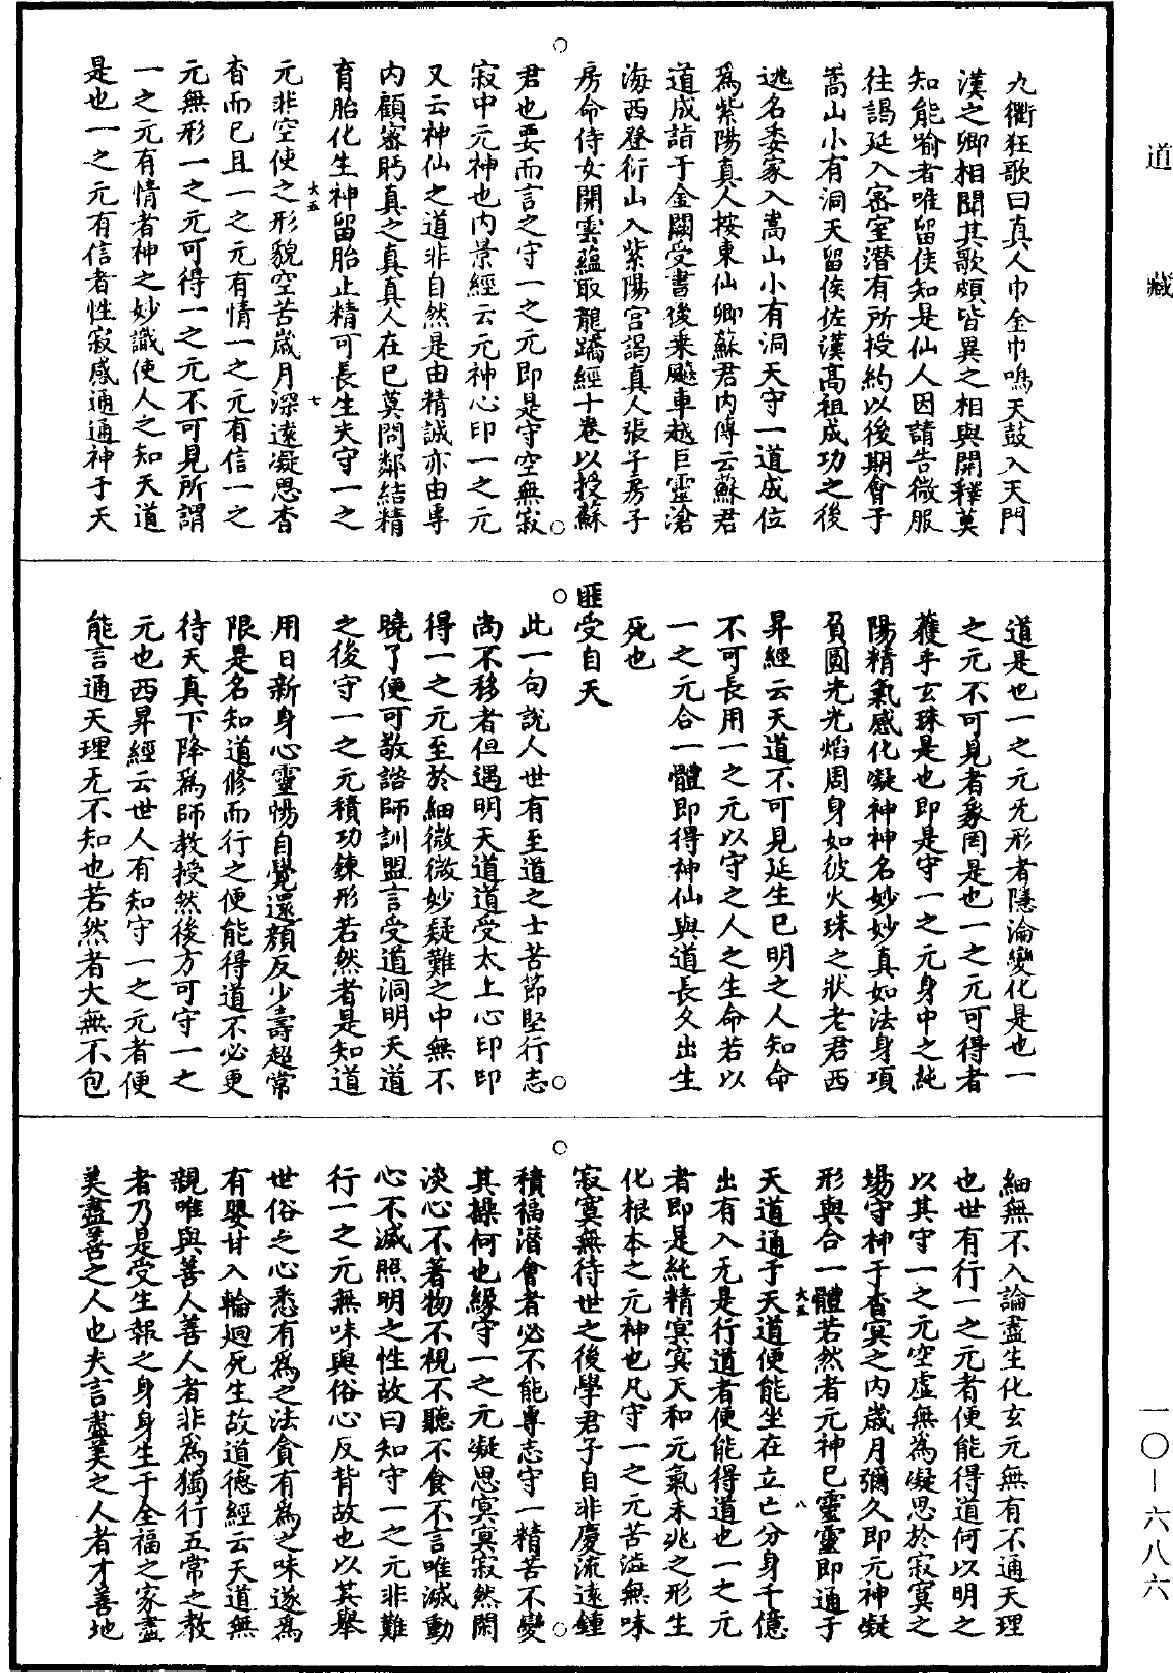 道藏
九衢狂歌曰真人巾金巾鳴天鼓入天門
漢之卿相聞其歌頗皆異之相與開釋莫
知能喻者唯留侯知是仙人因請告微服
往謁延入密室潛有所授約以後期會于
嵩山小有洞天留侯佐漢高祖成功之後
逃名委家入嵩山小有洞天守一道成位
爲紫陽真人按東仙卿蘇君內傳云蘇君
道成詣于金闕受書後乘飈車越巨靈滄
海西登衍山入紫陽宫謁真人張子房子
房命侍女開雲蘊取龍蹻經十卷以授蘇
君也要而言之守一之元即是守空無寂
寂中元神也內景經云元神心印一之元
又云神仙之道非自然是由精誠亦由專
內顧密眄真之真真人在己莫問鄰結精
育胎化生神留胎止精可長生夫守一之
元非空使之形貌空苦歲月深遠凝思杳
杳而已且一之元有情一之元有信一之
元無形一之元可得一之元不可見所謂
一之元有情者神之妙識使人之知天道
是也一之元有信者性寂感通通神于天
大五
七
道是也一之元旡形者隱淪變化是也一
之元不可見者象罔是也一之元可得者
獲乎玄珠是也即是守一之元身中之純
陽精氣感化凝神神名妙妙真如法身項
負圓光光焰周身如彼火珠之狀老君西
昇經云天道不可見延生已明之人知命
不可長用一之元以守之人之生命若以
一之元合一體即得神仙與道長久出生
死也
匪受自天
此一句說人世有至道之士苦節堅行志
尚不移者但遇明天道道受太上心印印
得一之元至於細微微妙疑難之中無不
曉了便可敬諮師訓盟言受道洞明天道
之後守一之元積功鍊形若然者是知道
用日新身心靈暢自覺還顏反少壽超常
限是名知道修而行之便能得道不必更
待天真下降爲師教授然後方可守一之
元也西昇經云世人有知守一之元者便
能言通天理无不知也若然者大無不包
細無不入論盡生化玄元無有不通天理
也世有行一之元者便能得道何以明之
以其守一之元空虛無為凝思於寂寞之
場守神于杳冥之內歲月彌久即元神凝
形與合一體若然者元神已靈靈即通于
天道通于天道便能坐在立亡分身千億
出有入无是行道者便能得道也一之元
者即是純精冥冥天和元氣未兆之形生
化根本之元神也凡守一之元苦澁無味
寂寞無待世之後學君子自非慶流遠鍾
積福潛會者必不能專志守一精苦不變
其操何也緣守一之元凝思冥冥寂然閑
淡心不著物不視不聽不食不言唯滅動
心不滅照明之性故曰知守一之元非難
行一之元無味與俗心反背故也以其舉
世俗之心悉有爲之法貪有爲之味遂爲
有嬰甘入輪廻死生故道德經云天道無
親唯與善人善人者非爲獨行五常之教
者乃是受生報之身身生于全福之家盡
美盡善之人也夫言盡美之人者才善地
大五
八
一〇—六八六